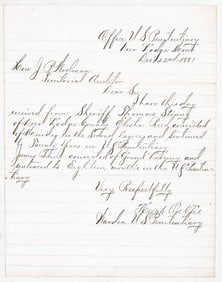 Office U S Penitentiary
Deer Lodge Mont
Dec 22nd 1881
Hon J P Woolman
Territorial Auditor
Dear Sir
I have this day
received from Sheriff Thomas
of Deer Lodge County Elisha convicted
of Murder in the Second Degree and sentenced
to Twenty Years in U S Penitentiary
James convicted of Grand Larceny and
sentenced to Eighteen months in the U S Peniten-
tiary
Very Respectfully
Warden U S Penitentiary